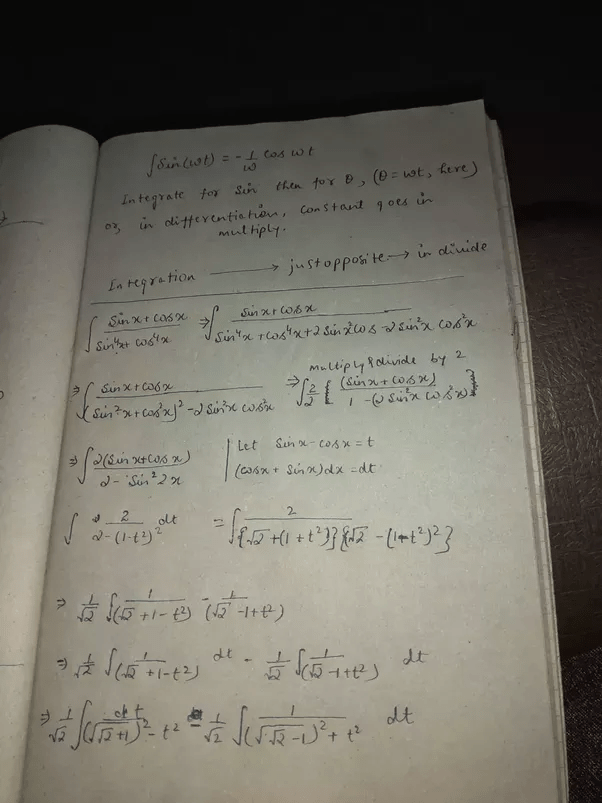 ∫Sin(wt) = -1/w cos wt
Integrate for sin then for θ, (θ = wt, here)
or, in differentiation, constant goes in
multiply.
Integration → just opposite → in divide
∫ (Sin x + cos x)/(Sin⁴x + cos⁴x) ⇒ ∫ (Sin x + cos x)/(Sin⁴x + cos⁴x + 2 Sin²x cos - 2 Sin²x cos²x)
multiply & divide by 2
⇒ ∫ (Sin x + cos x)/((Sin²x + cos²x)² - 2 Sin²x cos²x) ⇒ ∫ 2/2 [(Sin x + cos x)/(1 - (2 Sin²x cos²x))]
⇒ ∫ 2(Sin x + cos x)/(2 - Sin² 2x) | Let Sin x - cos x = t
(cos x + Sin x) dx = dt
∫ 2/(2 - (1-t²)²) dt = ∫ 2/({√2 + (1 + t²)} {√2 - (1-t²)²})
⇒ 1/√2 ∫ 1/(√2 + 1 - t²) - 1/(√2 - 1 + t²)
⇒ 1/√2 ∫ 1/(√2 + 1 - t²) dt - 1/√2 ∫ 1/(√2 - 1 + t²) dt
⇒ 1/√2 ∫ dt/((√(√2+1))² - t²) - 1/√2 ∫ 1/((√(√2-1))² + t²) dt